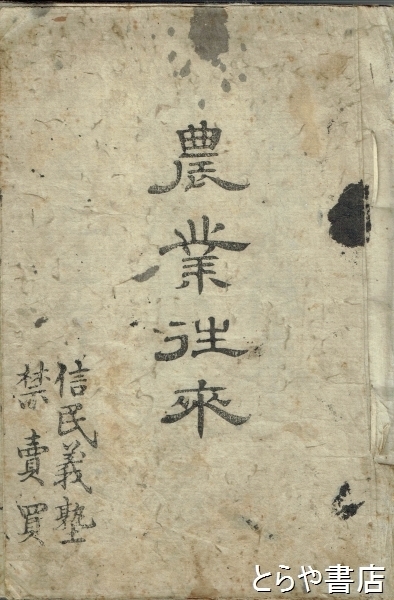 農業往来
信民義塾
禁賣買
とらや書店